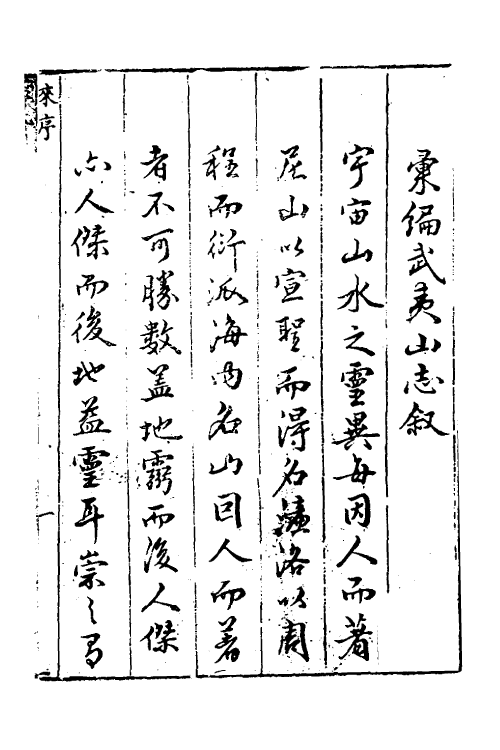 彙編武夷山志叙
宇宙山水之靈異每因人而著
尼山以宣聖而得名濂洛以周
程而衍派海内名山因人而著
者不可勝數盖地靈而後人傑
亦人傑而後地益靈耳崇之
來序
一